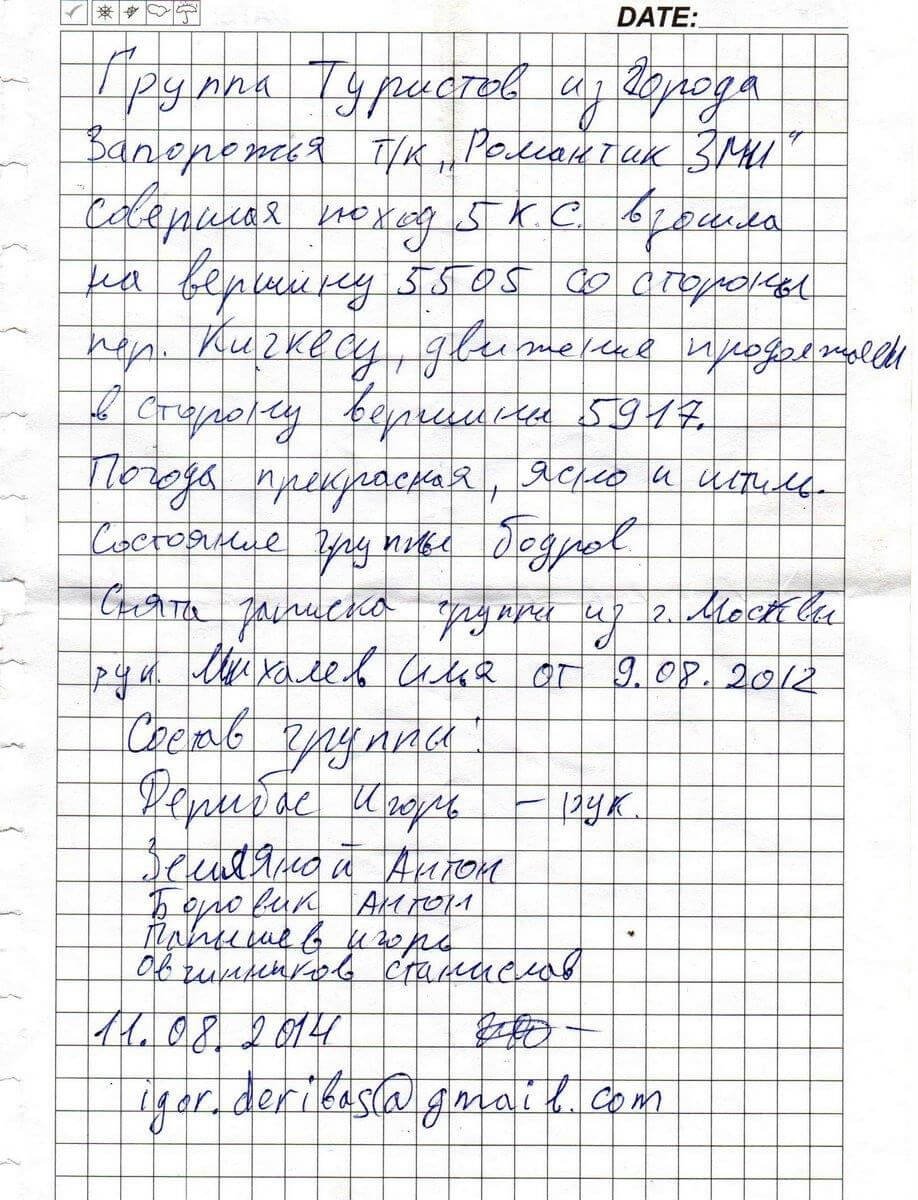 DATE:
Группа Туристов из Города
Запорожья т/к „Романтик ЗМИ"
совершая поход 5 к.с. взошла
на вершину 5505 со стороны
пер. Кичкесу, движение продолжаем
в сторону вершины 5917.
Погода прекрасная, ясно и штиль.
Состояние группы бодров
Снята записка группы из г. Москвы
рук. Михалев Илья от 9.08.2012
Состав группы:
Дерибас Игорь – рук.
Земляной Антон
Боровик Антон
Папишев игорь
Овчинников станислав
11.08.2014
igor.deribas@gmail.com